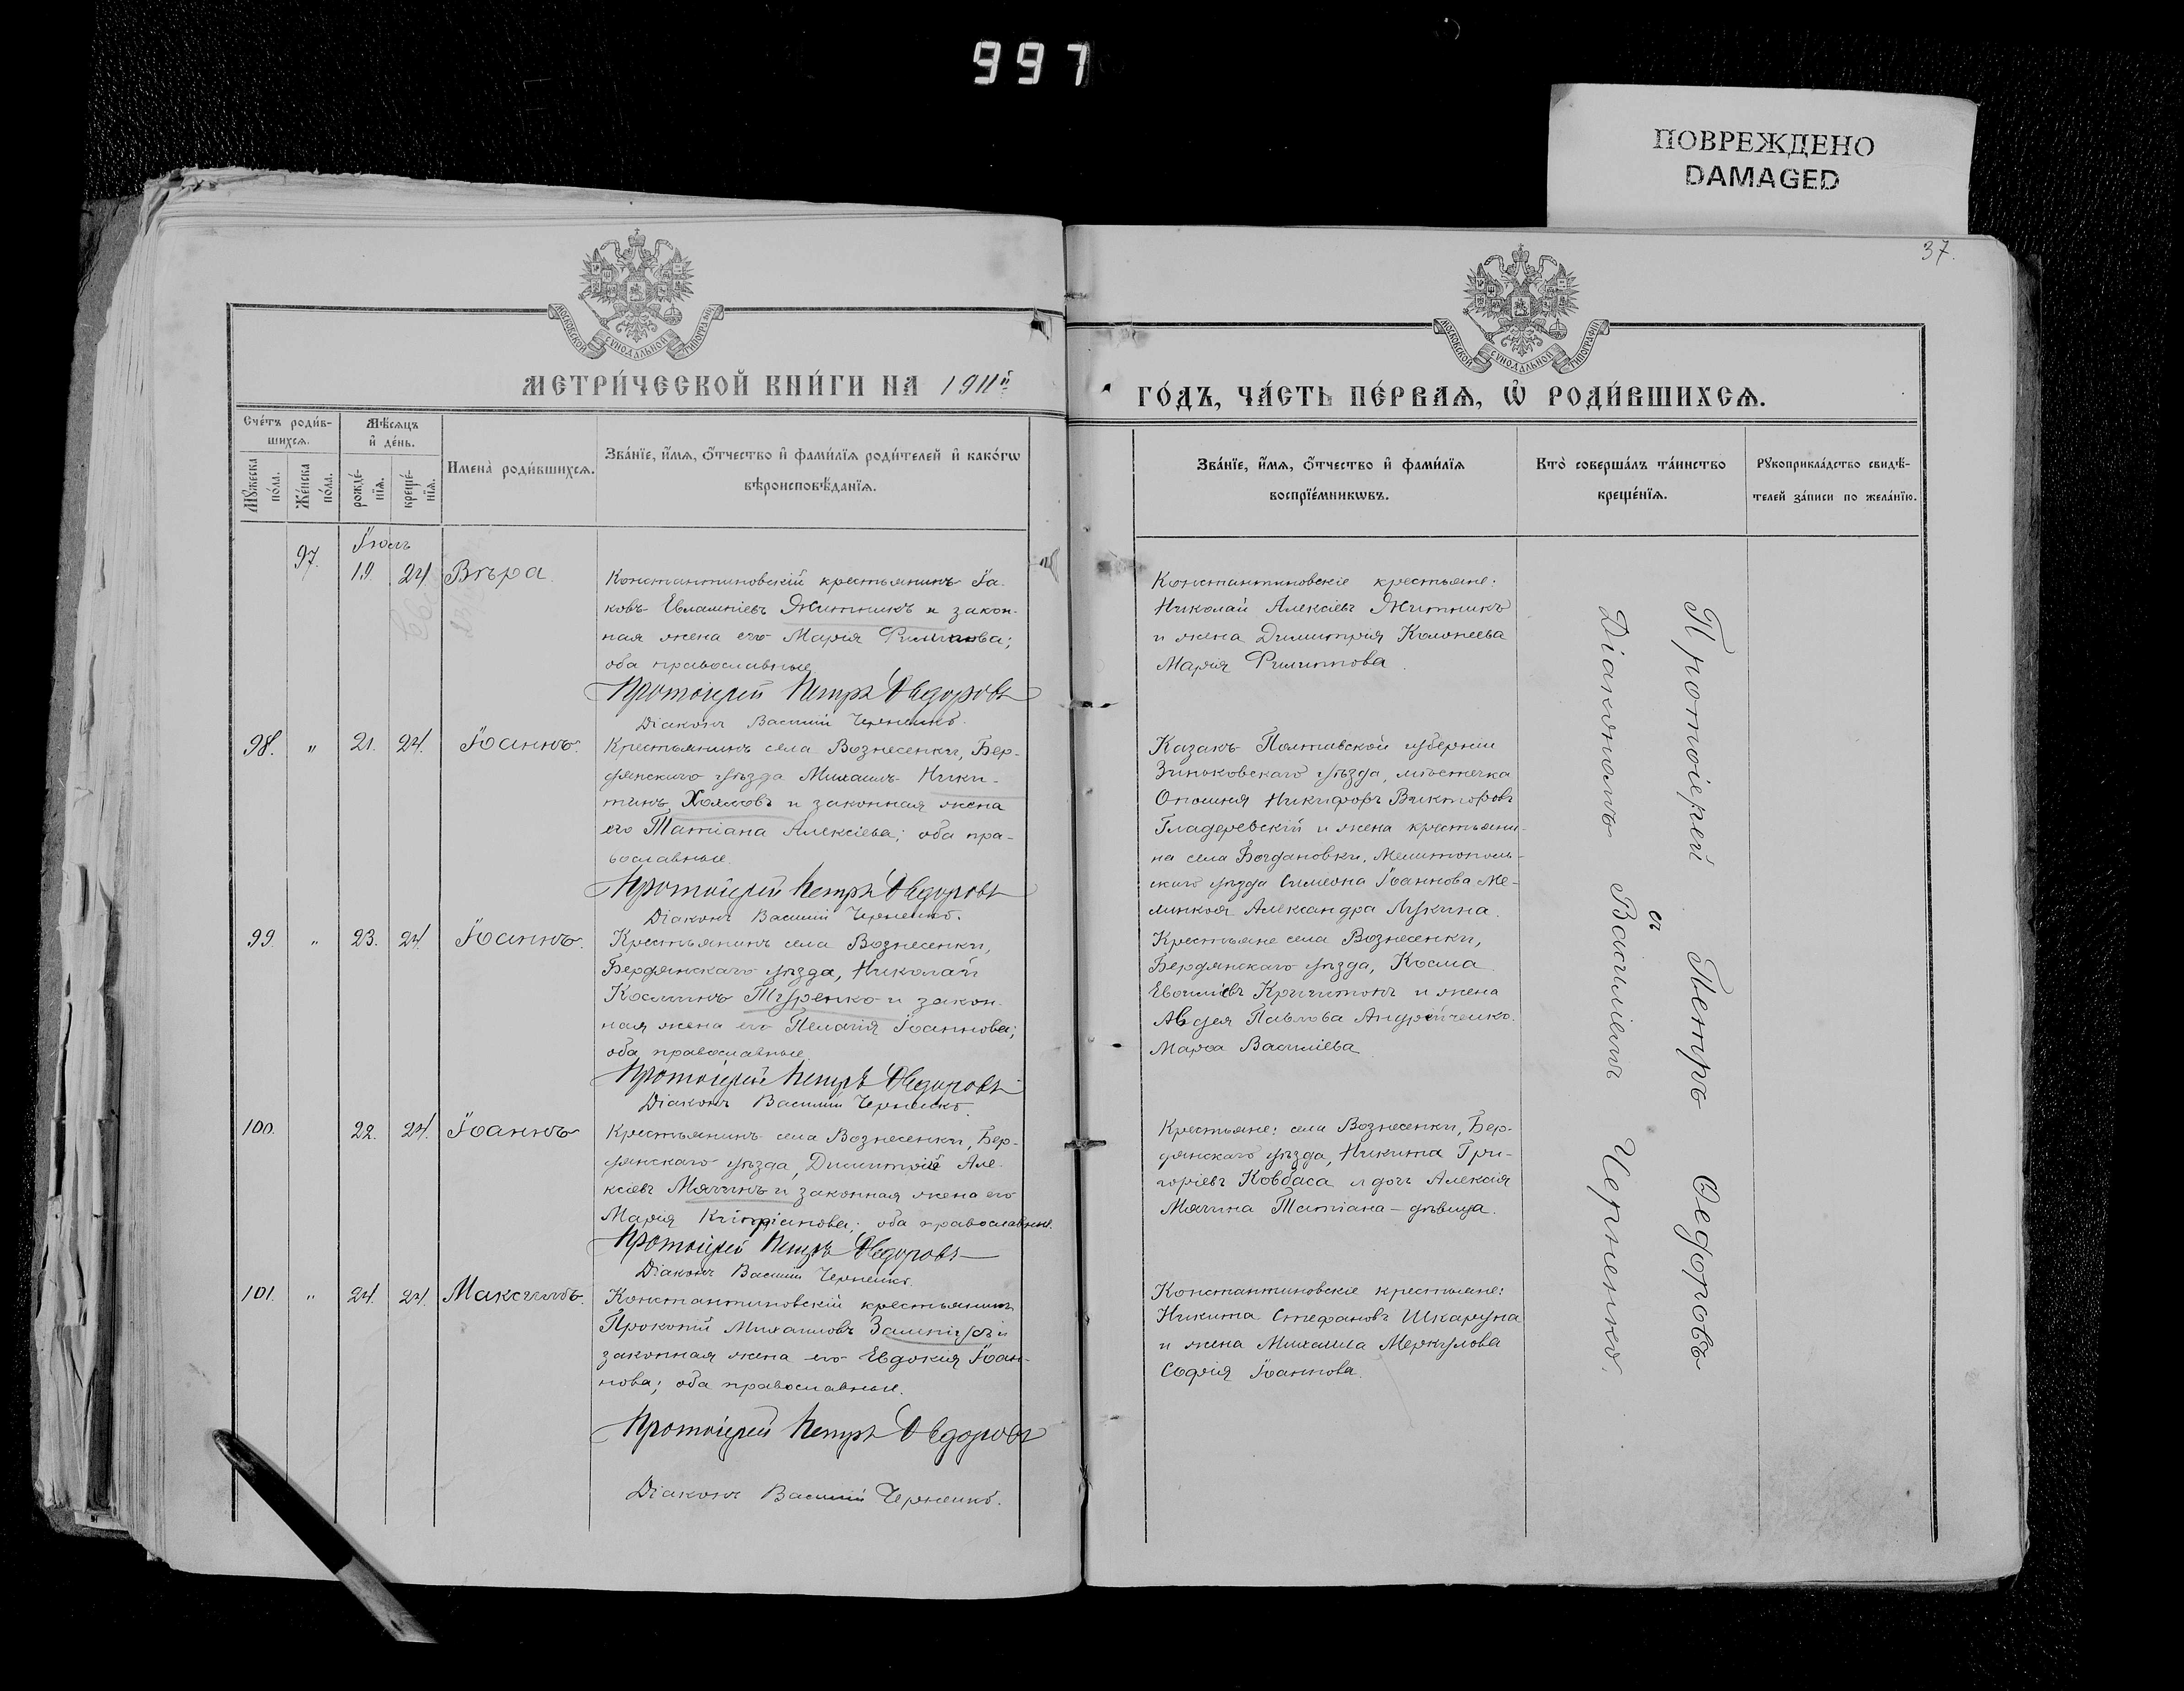 997
ПОВРЕЖДЕНО
DAMAGED
37.
МОСКОВСКОЙ СУНОДАЛЬНОЙ ТИПОГРАФІИ
МОСКОВСКОЙ СУНОДАЛЬНОЙ ТИПОГРАФІИ
МЕТРИ́ЧЕСКОЙ КНИ́ГИ НА 1911й
ГО́ДЪ, ЧА́СТЬ ПЕ́РВАѦ, Ѡ҆ РОДИ́ВШИХСѦ.
Сче́тъ роди́в-
шихсѧ.
Мꙋ́жеска по́ла.
Же́нска по́ла.
Мѣ́сѧцъ
и҆ де́нь.
рожде́-
нїѧ.
креще́-
нїѧ.
И҆мена̀ роди́вшихсѧ.
Зва́нїе, и҆́мѧ, ѻ҆́тчество и҆ фами́лїѧ роди́телей и҆ како́гѡ
вѣроисповѣ́данїѧ.
Зва́нїе, и҆́мѧ, ѻ҆́тчество и҆ фами́лїѧ
воспрїе́мникѡвъ.
Кто̀ соверша́лъ та́инство
креще́нїѧ.
Рꙋкоприкла́дство свидѣ́-
телей за́писи по жела́нїю.
Іюль
97. 19. 24 Вѣра.
Константиновскій крестьянинъ Іа-
ковъ Евлампіевъ Житникъ и закон-
ная жена его Марія Филипова;
оба православные.
Протоіерей Петръ Ѳедоровъ
Діаконъ Василій Черненко.
Константиновскіе крестьяне:
Николай Алексіевъ Житникъ
и жена Димитрія
Марія Филиппова.
98. " 21. 24. Іоаннъ.
Крестьянинъ села Вознесенки, Бер-
дянскаго уѣзда Михаилъ Ники-
тинъ и законная жена
его Татіана Алексіева; оба пра-
вославные.
Протоіерей Петръ Ѳедоровъ
Діаконъ Василій Черненко.
Казакъ Полтавской губерніи
Зиньковскаго уѣзда, мѣстечка
Опошня Никифоръ Викторовъ
Гладеревскій и жена крестьяни-
на села Богдановки, Мелитополь-
скаго уѣзда Симеона Іоаннова Ме-
Александра Лукина.
99. " 23. 24. Іоаннъ.
Крестьянинъ села Вознесенки,
Бердянскаго уѣзда, Николай
Косминъ Туренко и закон-
ная жена его Пелагія Іоаннова;
оба православные.
Протоіерей Петръ Ѳедоровъ
Діаконъ Василій Черненко.
Крестьяне села Вознесенки,
Бердянскаго уѣзда, Косма
и жена
Авдея Павлова Андрейченко
Марѳа Василіева
100. 22. 24. Іоаннъ
Крестьянинъ села Вознесенки, Бер-
дянскаго уѣзда, Димитрій Але-
ксіевъ Мячинъ и законная жена его
Марія Кипріанова; оба православные.
Протоіерей Петръ Ѳедоровъ
Діаконъ Василій Черненко.
Крестьяне: села Вознесенки, Бер-
дянскаго уѣзда, Никита Гри-
горіевъ Ковбаса и дочь Алексія
Мячина Татіана – дѣвица.
101. " 24. 24. Максимъ.
Константиновскій крестьянинъ
Прокопій Михаиловъ и
законная жена его Евдокія Іоан-
нова; оба православные.
Протоіерей Петръ Ѳедоровъ
Діаконъ Василій Черненко.
Константиновскіе крестьяне:
Никита Стефановъ Шкарупа
и жена Михаила Меркулова
Софія Іоаннова.
Протоіерей Петръ Ѳедоровъ
съ
Діакономъ Василіемъ Черненко.